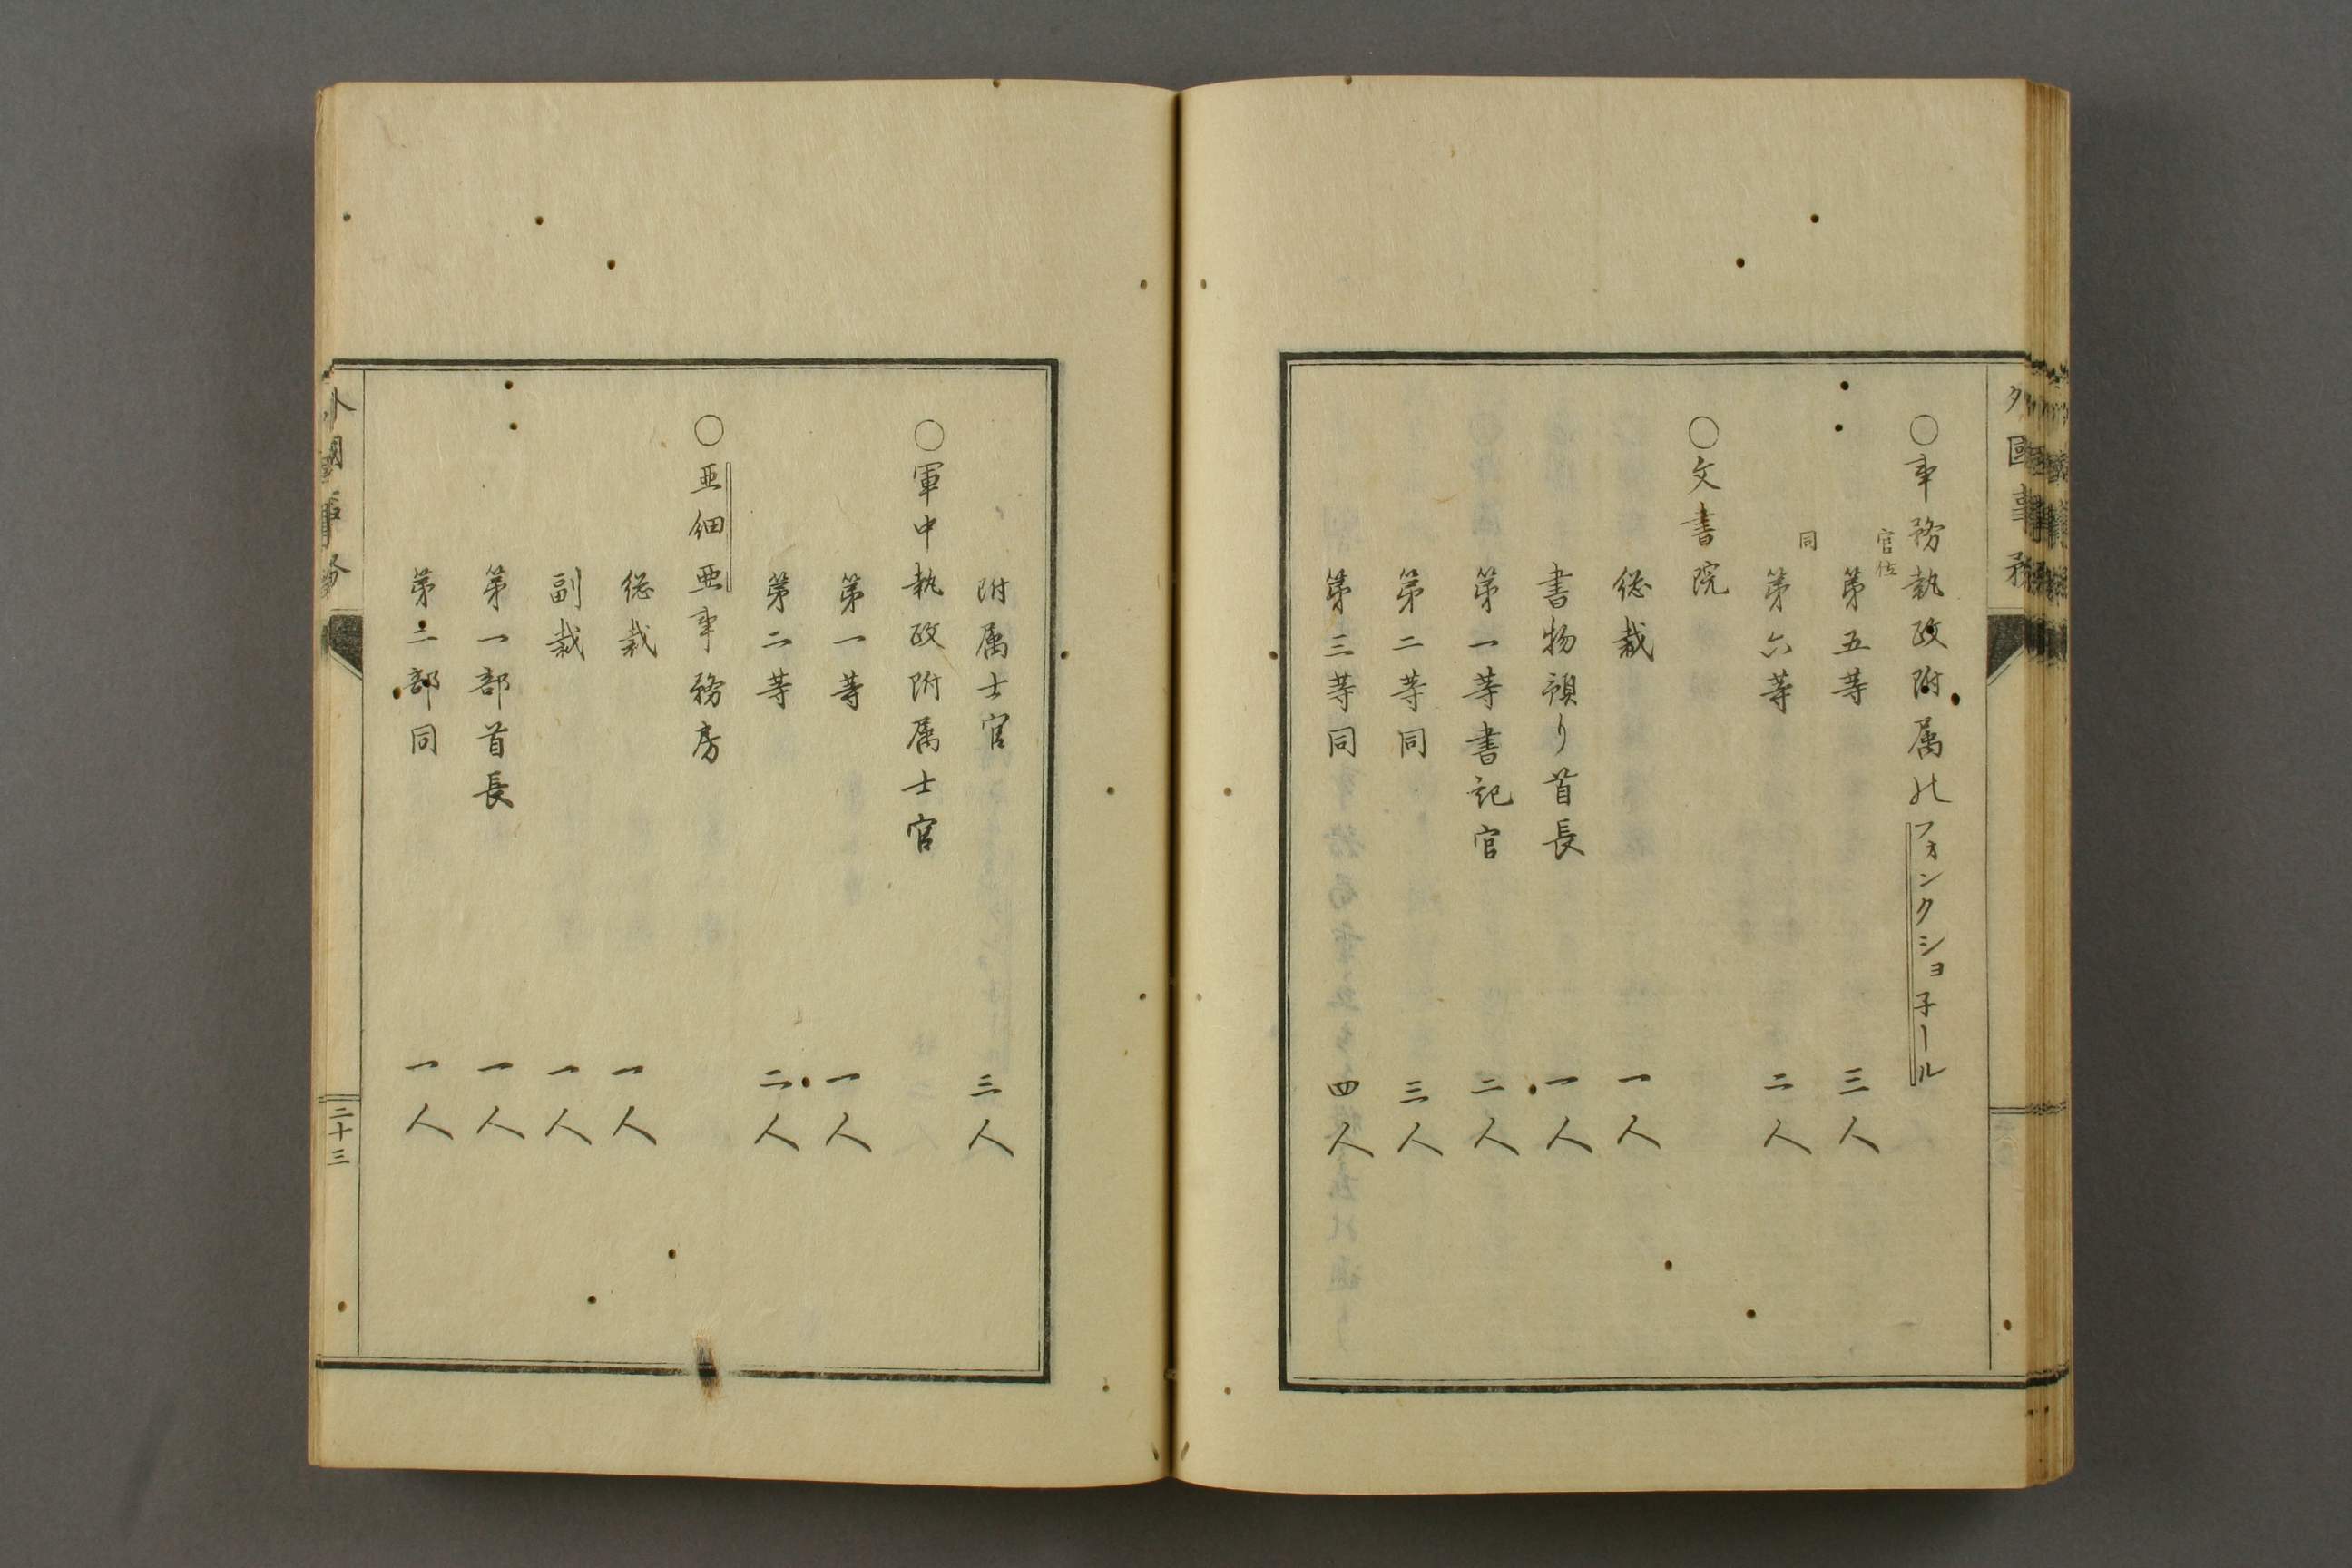 外國事務
○事務執政附属のフォンクショ子ール
官位
第五等 三人
同
第六等 二人
○文書院
総裁 一人
書物預り首長 一人
第一等書記官 二人
第二等同 三人
第三等同 四人
附属士官 三人
○軍中執政附属士官
第一等 一人
第二等 二人
○亜細亜事務房
総裁 一人
副裁 一人
第一部首長 一人
第二部同 一人
外國事務
二十三